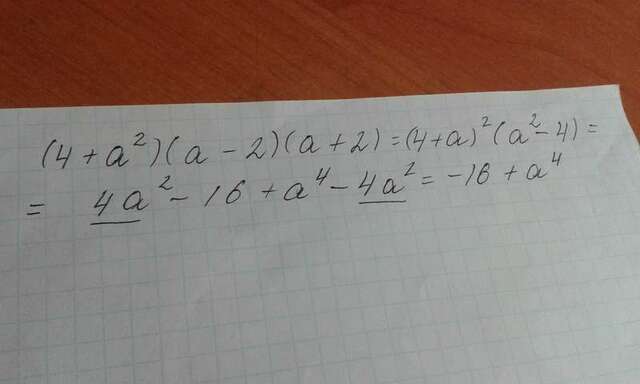 (4+a²)(a-2)(a+2)=(4+a)²(a²-4)=
= 4a²-16+a⁴-4a²=-16+a⁴